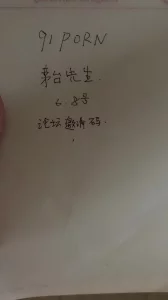 91 PORN
茅台先生.
6.8号
论坛邀请码.